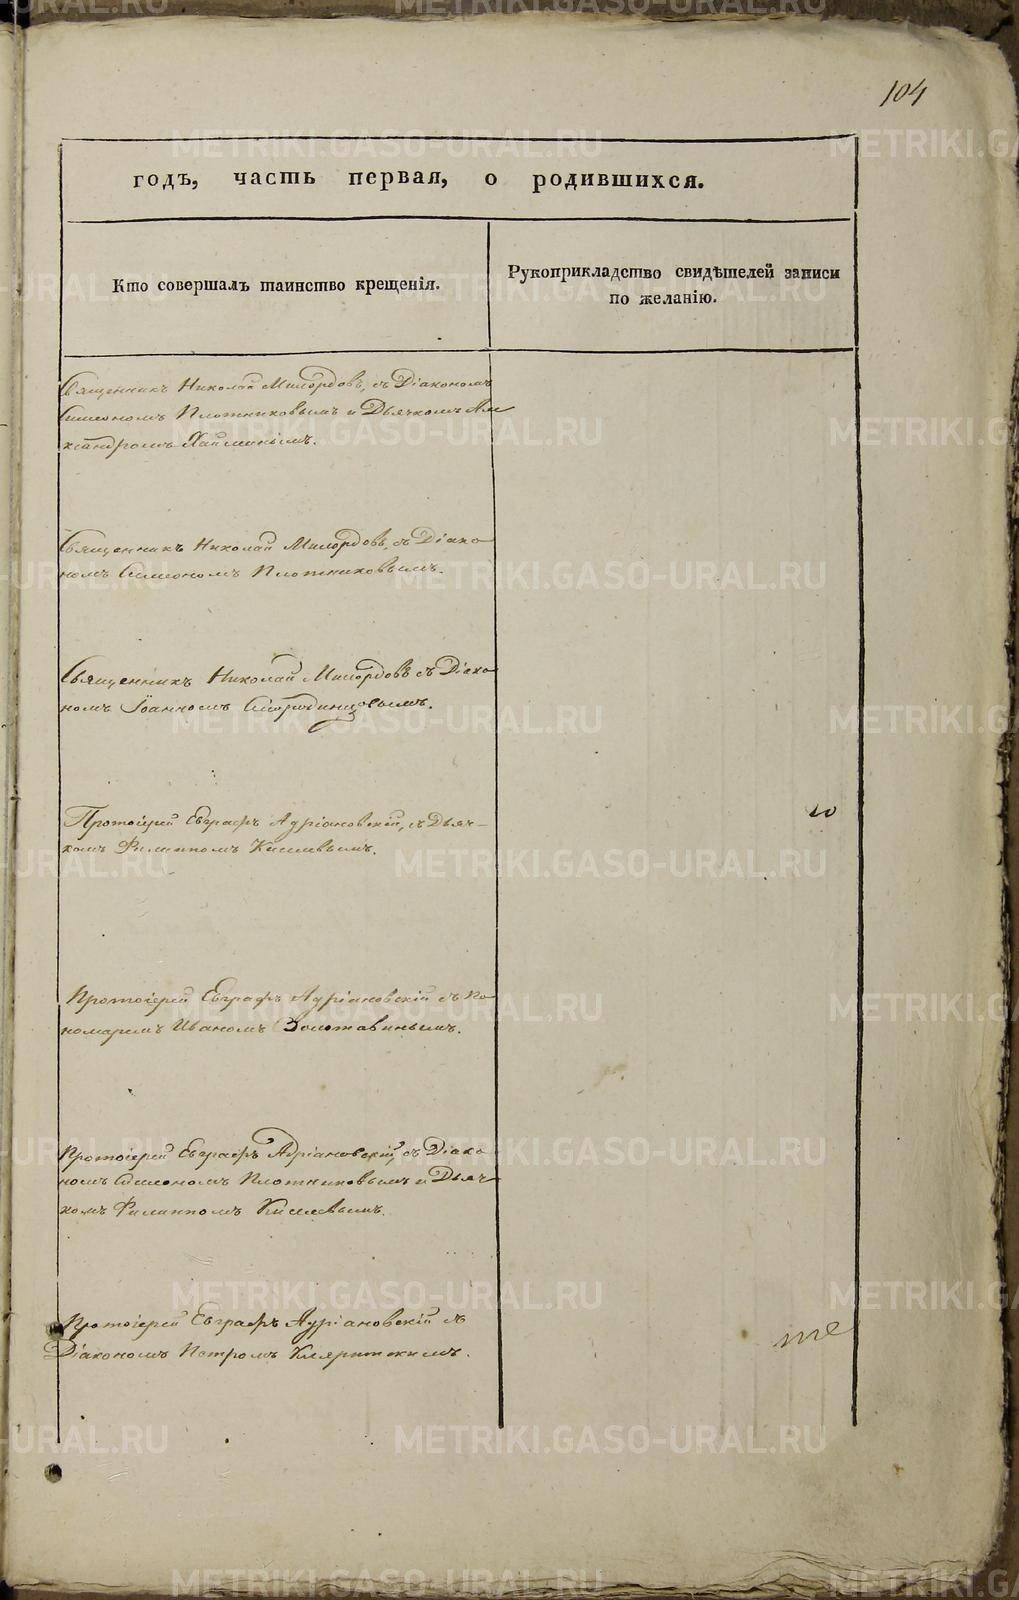 104
годъ, часть первая, о родившихся.
Кто совершалъ таинство крещенія.
Рукоприкладство свидѣтелей записи
по желанію.
Священникъ Николай Милордовъ, съ Діакономъ
Симеономъ Плотниковымъ и Дьячкомъ Але
ксандромъ
Священникъ Николай Милордовъ, съ Діако
номъ Симеономъ Плотниковымъ.
Священникъ Николай Милордовъ съ Діако
номъ Іоанномъ
Протоіерей Евграфъ Адріановскій, съ Дьяч-
комъ Филиппомъ Киселевымъ.
Протоіерей Евграфъ Адріановскій съ По
номаремъ Иваномъ Золотавинымъ.
Протоіерей Евграфъ Адріановскій, съ Діако
номъ Симеономъ Плотниковымъ и Дьяч
комъ Филиппомъ Киселевымъ.
Протоіерей Евграфъ Адріановскій съ
Діакономъ Петромъ
METRIKI.GASO-URAL.RU